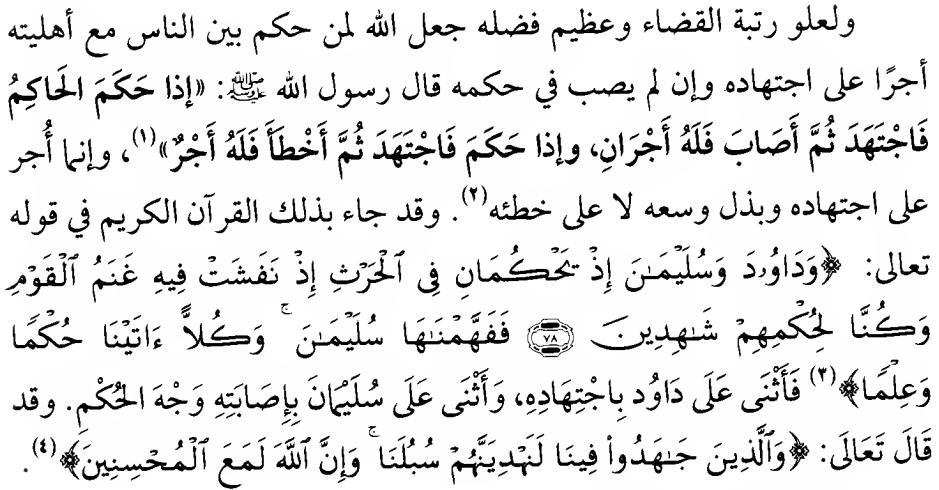 ولعلو رتبة القضاء وعظيم فضله جعل الله لمن حكم بين الناس مع أهليته
أجرًا على اجتهاده وإن لم يصب في حكمه قال رسول الله ﷺ: «إذا حَكَمَ الحَاكِمُ
فَاجْتَهَدَ ثُمَّ أَصَابَ فَلَهُ أَجْرَانِ، وإذا حَكَمَ فَاجْتَهَدَ ثُمَّ أَخْطَأَ فَلَهُ أَجْرٌ»(١)، وإنما أُجر
على اجتهاده وبذل وسعه لا على خطئه(٢). وقد جاء بذلك القرآن الكريم في قوله
تعالى: ﴿وَدَاوُۥدَ وَسُلَيْمَٰنَ إِذْ يَحْكُمَانِ فِى ٱلْحَرْثِ إِذْ نَفَشَتْ فِيهِ غَنَمُ ٱلْقَوْمِ
وَكُنَّا لِحُكْمِهِمْ شَٰهِدِينَ ٧٨ فَفَهَّمْنَٰهَا سُلَيْمَٰنَ ۚ وَكُلًّا ءَاتَيْنَا حُكْمًا
وَعِلْمًا﴾(٣) فَأَثْنَى عَلَى دَاوُد بِاجْتِهَادِهِ، وَأَثْنَى عَلَى سُلَيْمَانَ بِإِصَابَتِهِ وَجْهَ الحُكْمِ. وقد
قَالَ تَعَالَى: ﴿وَٱلَّذِينَ جَٰهَدُوا۟ فِينَا لَنَهْدِيَنَّهُمْ سُبُلَنَا ۚ وَإِنَّ ٱللَّهَ لَمَعَ ٱلْمُحْسِنِينَ﴾(٤).